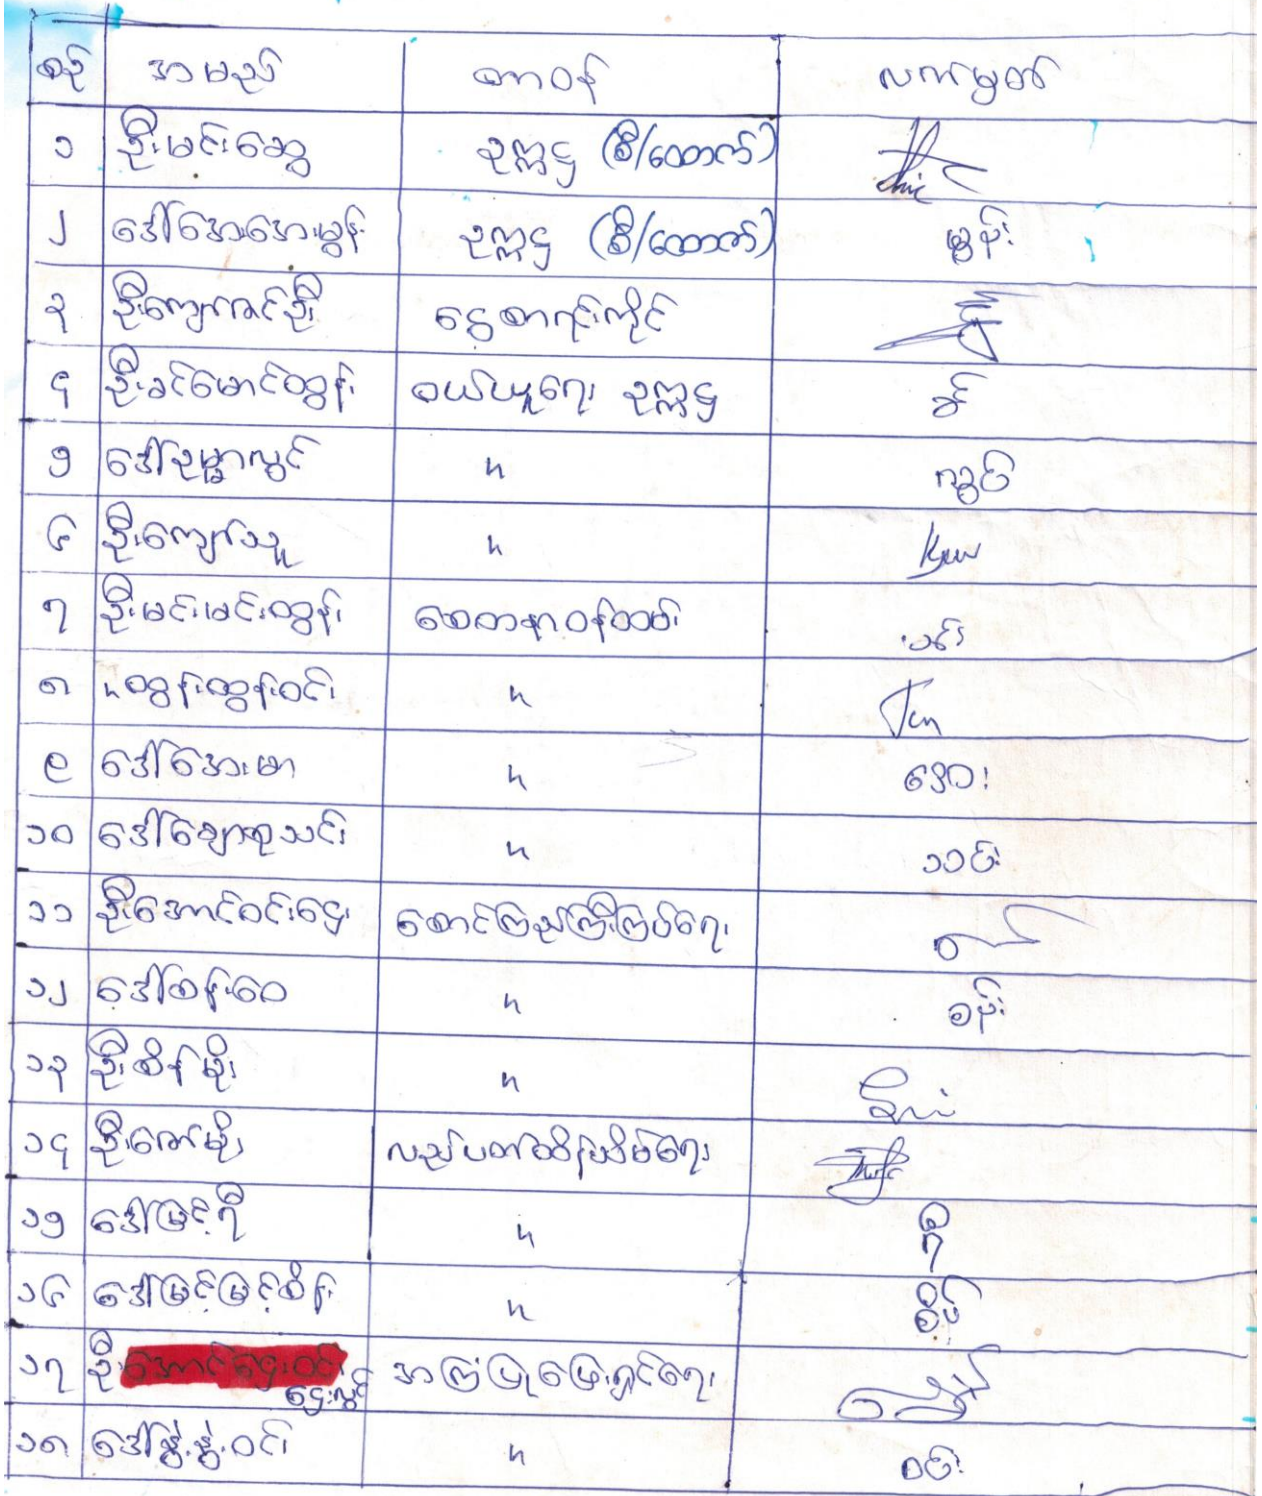 စဉ် အမည် တာဝန် လက်မှတ်
၁ ဦးမင်းဆွေ ဥက္ကဋ္ဌ (စီ/ထောက်)
၂ ဒေါ်အေးအေးမွန် ဥက္ကဋ္ဌ (စီ/ထောက်) မွန်း
၃ ဦးကျော်ဇင်ဦး ငွေစာရင်းကိုင်
၄ ဦးခင်မောင်ထွန်း ဝယ်ယူရေး ဥက္ကဋ္ဌ
၅ ဒေါ်ဥမ္မာလွင် " လွင်
၆ ဦးကျော်သူ "
၇ ဦးမင်းမင်းထွန်း စေတနာ့ဝန်ထမ်း
၈ " ထွန်းထွန်းဝင်း "
၉ ဒေါ်အေးမာ " အေး
၁၀ ဒေါ်ချောစုသင်း " သင်း
၁၁ ဦးအောင်ဝင်းဌေး စောင့်ကြည့်ကြီးကြပ်ရေး
၁၂ ဒေါ်စန်းဝေ " စန်း
၁၃ ဦးစိန်မိုး "
၁၄ ဦးဇော်မိုး လည်ပတ်ထိန်းသိမ်းရေး
၁၅ ဒေါ်မြင့်ရီ " ရီ
၁၆ ဒေါ်မြင့်မြင့်စိန် " စိန်
၁၇ ဦး ဌေးလွင် အကြံပြုဖြေရှင်းရေး
၁၈ ဒေါ်နွဲ့နွဲ့ဝင်း " ဝင်း